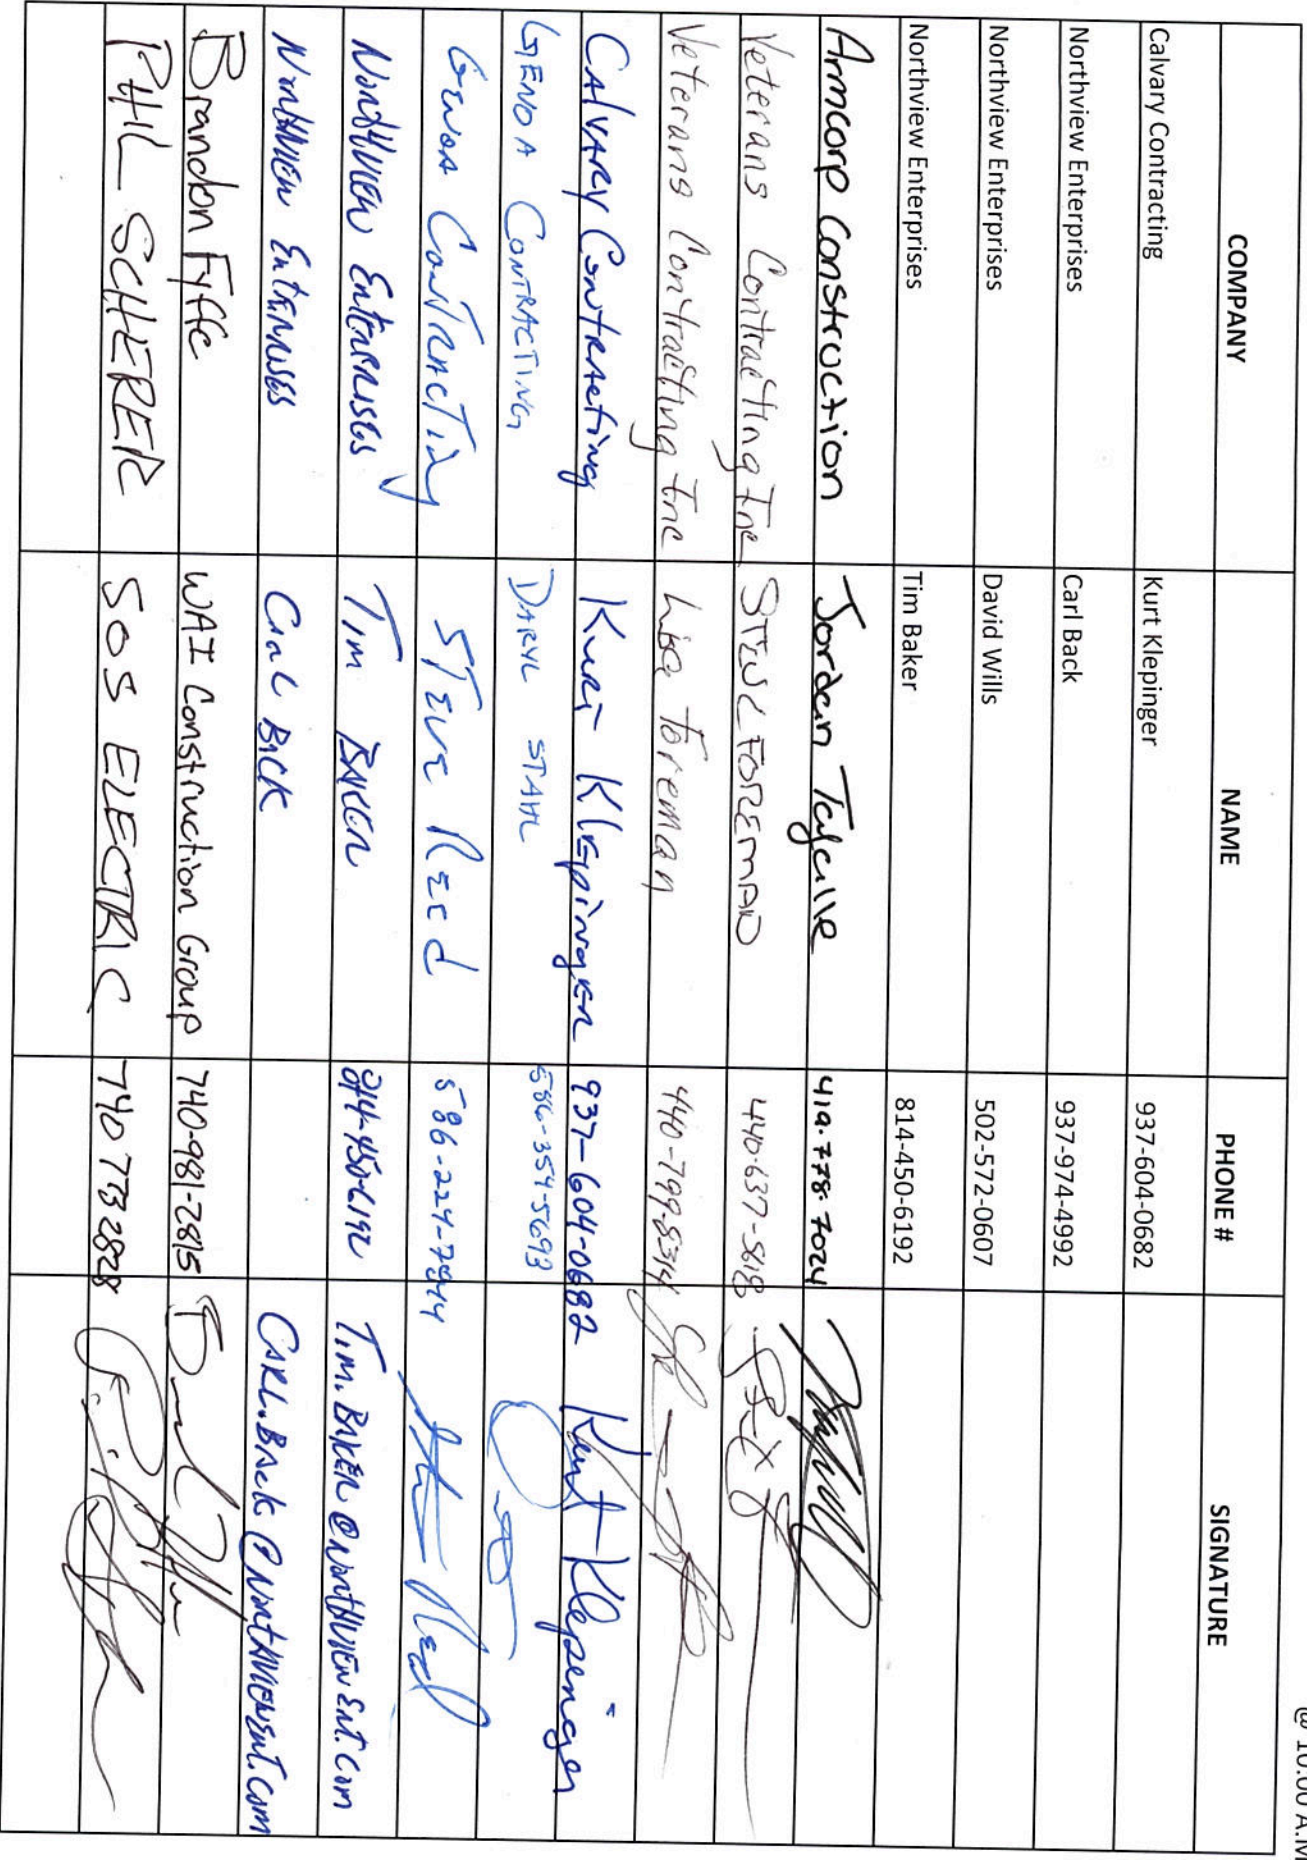 @ 10:00 A.M
COMPANY NAME PHONE # SIGNATURE
Calvary Contracting Kurt Klepinger 937-604-0682
Northview Enterprises Carl Back 937-974-4992
Northview Enterprises David Wills 502-572-0607
Northview Enterprises Tim Baker 814-450-6192
Armcorp Construction Jordan 419.778.7024
Veterans Contracting Inc STEVE FOREMAN 440-637-5618
Veterans Contracting Inc Lisa Foreman 440-799-8314
CALVARY Contracting Kurt Klepinger 937-604-0682 Kurt Klepinger
GENOA CONTRACTING DARYL STAHL 586-354-5693
Genoa Contracting Steve Reed 586-224-7944 Steve Reed
Northview Enterprises Tim Baker 814-450-6192 Tim.Baker@northviewent.com
Northview Enterprises Carl Back Carl.Back@northviewent.com
Brandon Fyffe WAI Construction Group 740-981-2815
PHIL SCHERER SOS ELECTRIC 740 778 2828